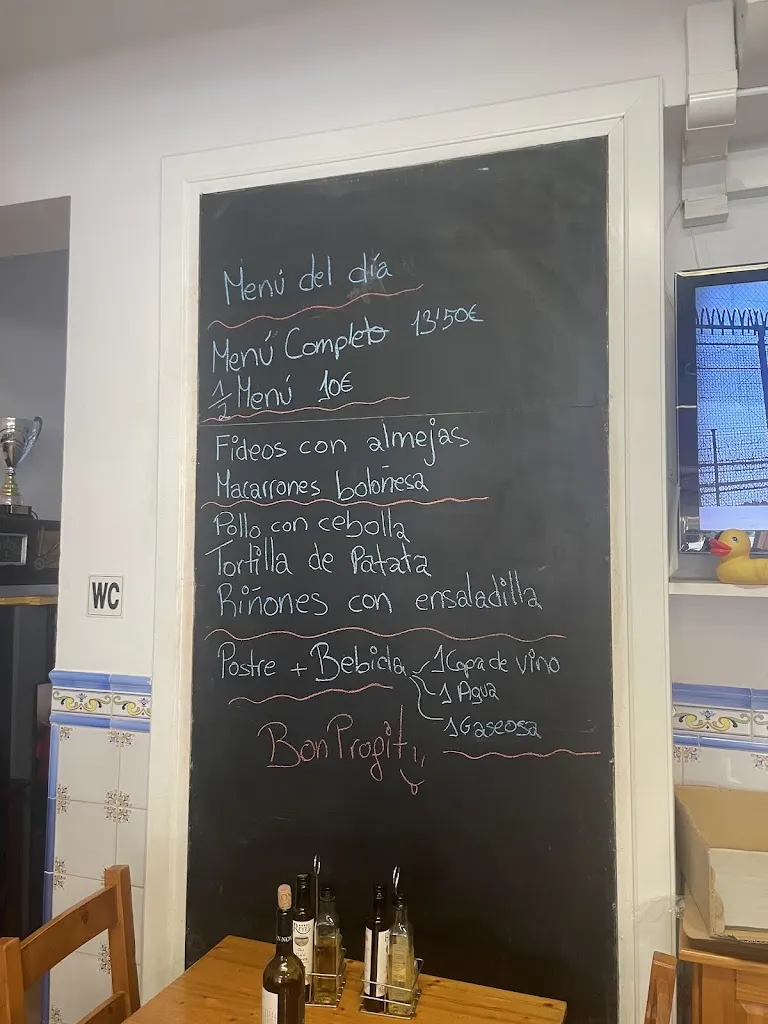 Menú del día
Menú Completo 13'50€
1/2 Menú 10€
Fideos con almejas
Macarrones boloñesa
Pollo con cebolla
Tortilla de Patata
Riñones con ensaladilla
Postre + Bebida 1 Copa de vino
1 Agua
1 Gaseosa
Bon Profit!!
WC